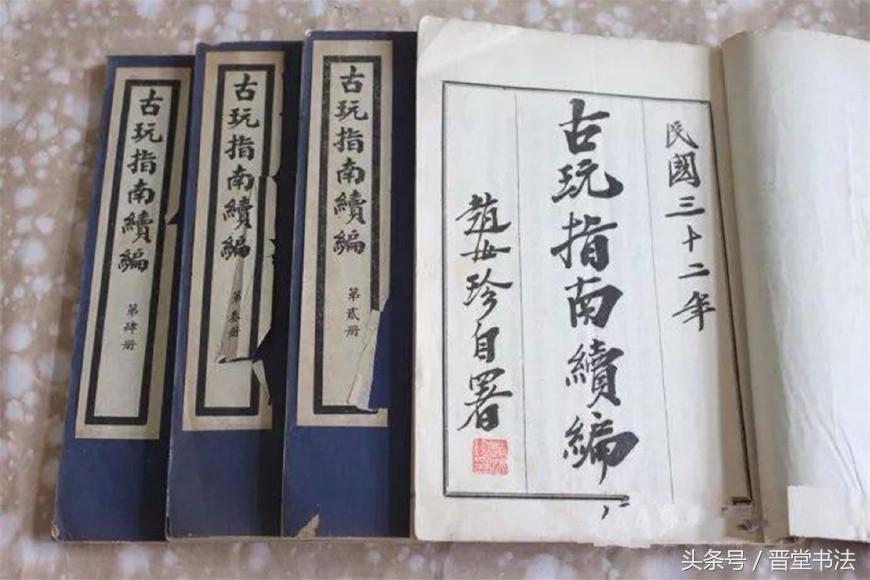 民國三十二年
古玩指南續編
趙汝珍自署
古玩指南續編
第貳册
古玩指南續編
第叁册
古玩指南續編
第肆册
头条号 / 晋堂书法